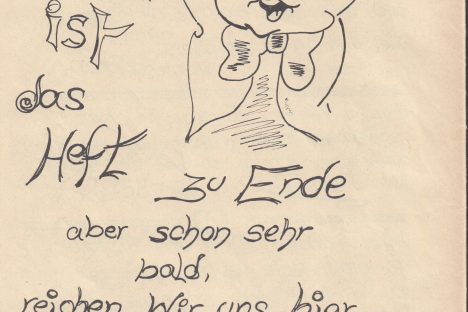 ist
das
Heft
zu Ende
aber schon sehr
bald,
reichen wir uns hier